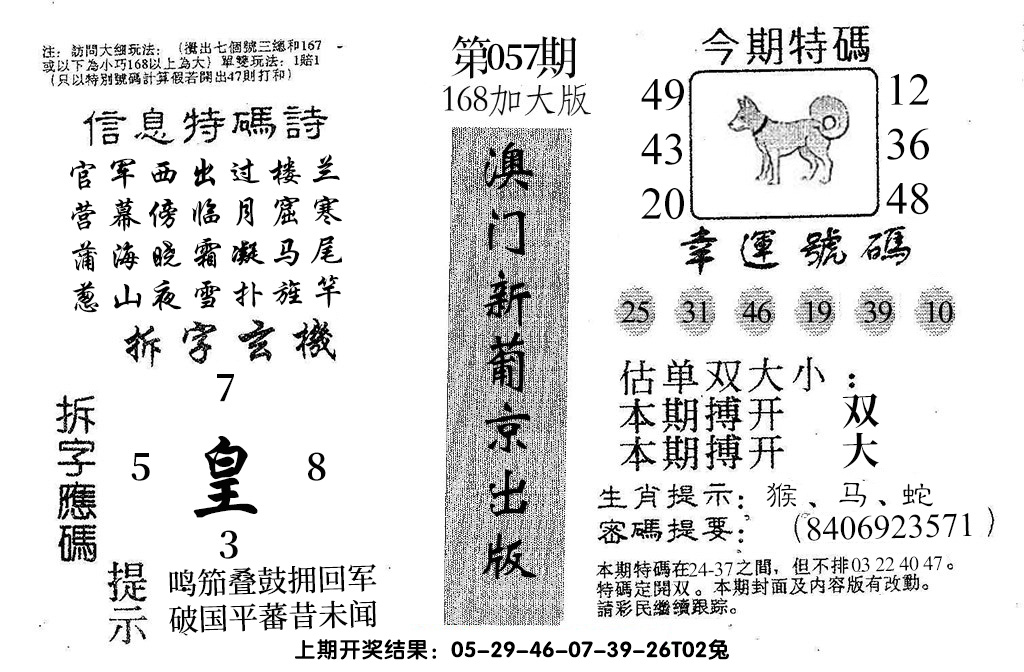 注：訪問大细玩法：(攪出七個號三總和167
或以下為小巧168以上為大）單雙玩法：1賠1
（只以特別號碼計算假若開出47則打和）
信息特碼詩
官军西出过楼兰
营幕傍临月窟寒
蒲海晓霜凝马尾
葱山夜雪扑旌竿
拆字玄機
拆字應碼
7
5 皇 8
3
提示
鸣笳叠鼓拥回军
破国平蕃昔未闻
第057期
168加大版
澳门新葡京出版
今期特碼
49 12
43 36
20 48
幸運號碼
25 31 46 19 39 10
估单双大小：
本期搏开 双
本期搏开 大
生肖提示：猴、马、蛇
密碼提要：（8406923571）
本期特碼在24-37之間，但不排03 22 40 47。
特碼定開双。本期封面及内容版有改動。
請彩民繼續跟踪。
上期开奖结果：05-29-46-07-39-26T02兔